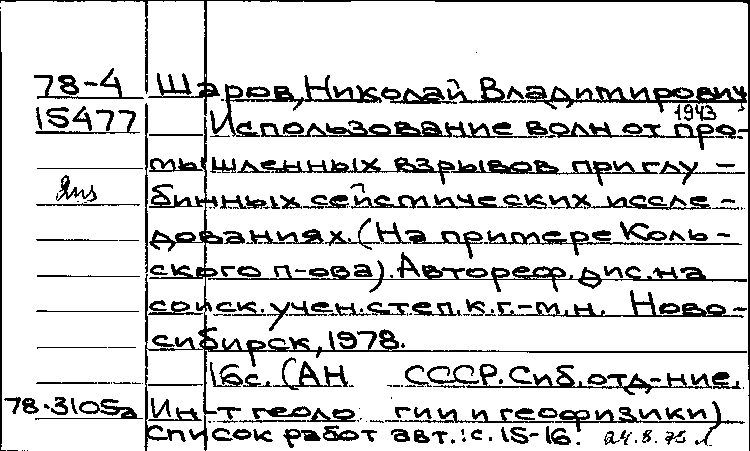 78-4 Шаров, Николай Владимирович
1943
15477 Использование волн от про-
мышленных взрывов при глу-
бинных сейсмических иссле-
дованиях. (На примере Коль-
ского п-ова). Автореф. дис. на
соиск. учен. степ. к.г.-м.н. Ново-
сибирск, 1978.
16с. (АН СССР. Сиб. отд-ние.
78-3105а Ин-т геоло гии и геофизики)
Список работ авт.: с. 15-16.